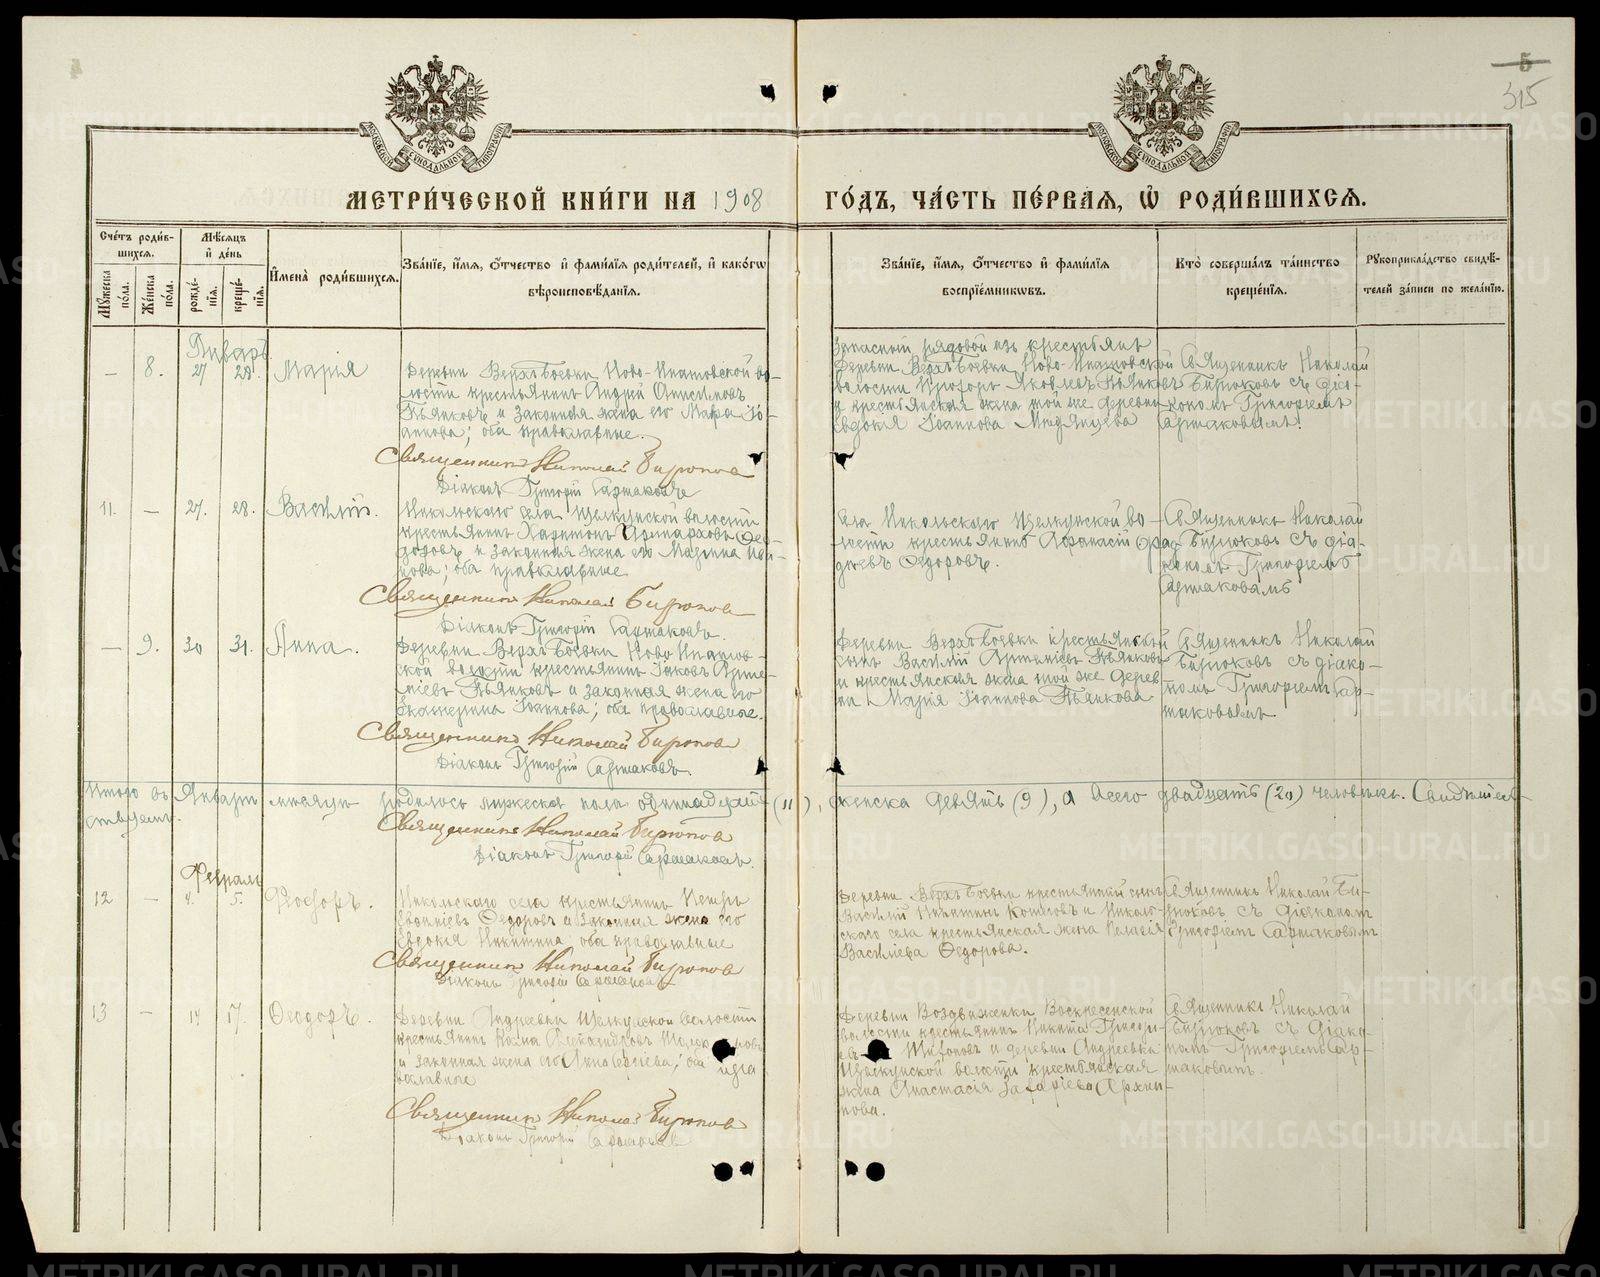 5
315
МОСКОВСКОЙ СѴНОДАЛЬНОЙ ТИПОГРАФІИ
МОСКОВСКОЙ СѴНОДАЛЬНОЙ ТИПОГРАФІИ
МЕТРИ́ЧЕСКОЙ КНИ́ГИ НА 1908 ГО́ДЪ, ЧА́СТЬ ПЕ́РВАЯ, Ѡ҆ РОДИ́ВШИХСЯ.
Сче́тъ роди́в-
шихся.
Му́жеска по́ла.
Же́нска по́ла.
Мѣ́сяцъ
и҆ де́нь
рожде́-
нїя.
креще́-
нїя.
И҆мена̀ роди́вшихся.
Зва́нїе, и҆́мя, ѻ҆́тчество и҆ фами́лїя роди́телей, и҆ како́гѡ
вѣроисповѣ́данїя.
Зва́нїе, и҆́мя, ѻ҆́тчество и҆ фами́лїя
воспрїе́мниковъ.
Кто̀ соверша́лъ та́инство
креще́нїя.
Рꙋкоприкла́дство свидѣ́-
телей за́писи по жела́нїю.
Январь
— 8. 27 28. Марія
Деревни Верхъ Боевки Ново-Ипатовской во-
лости крестьянинъ Андрей Анисимовъ
Пьянковъ и законная жена его Марѳа Іо-
аннова; оба православные.
Священникъ Николай Бирюковъ
Діаконъ Григорій Сартаковъ
Запасной рядовой изъ крестьянъ
деревни Верхъ Боевки Ново-Ипатовской
волости Яковлевъ Пьянковъ
и крестьянская жена той же деревни
Евдокія Іоаннова
Священникъ Николай
Бирюковъ съ діа-
кономъ Григоріемъ
Сартаковымъ.
11. — 27. 28. Василій.
Никольскаго села Щелкунской волости
крестьянинъ Харитонъ Ѳео-
доровъ и законная жена его Марина
оба православные
Священникъ Николай Бирюковъ
Діаконъ Григорій Сартаковъ.
Села Никольскаго Щелкунской во-
лости крестьянинъ Аѳанасій
Ѳедоровъ.
Священникъ Николай
Бирюковъ съ діа-
кономъ Григоріемъ
Сартаковымъ
— 9. 30 31. Анна.
Деревни Верхъ Боевки Ново Ипатов-
ской волости крестьянинъ Іаковъ Арте-
міевъ Пьянковъ и законная жена его
Екатерина Іоаннова; оба православные.
Священникъ Николай Бирюковъ
Діаконъ Григорій Сартаковъ.
Деревни Верхъ Боевки крестьянскій
сынъ Василій Артеміевъ Пьянковъ
и крестьянская жена той же дерев-
ни Марія Іоаннова Пьянкова
Священникъ Николай
Бирюковъ съ діако-
номъ Григоріемъ Сар-
таковымъ
Итого въ Январѣ мѣсяцѣ родилось мужеска пола одиннадцать (11), женска девять (9), а всего двадцать (20) человѣкъ. Свидѣтель-
ствуемъ.
Священникъ Николай Бирюковъ
Діаконъ Григорій Сартаковъ.
Февраль
12 — 4. 5. Ѳеодоръ.
Никольскаго села крестьянинъ Петръ
Ѳедоровъ и законная жена его
Евдокія Никитина оба православные
Священникъ Николай Бирюковъ
Діаконъ Григорій Сартаковъ
Деревни Верхъ Боевки крестьянскій сынъ
Василій и Николь-
скаго села крестьянская жена Пелагія
Васильева Ѳедорова.
Священникъ Николай Би-
рюковъ съ діакономъ
Григоріемъ Сартаковымъ
13 — 14 17. Ѳеодоръ.
Деревни Андреевки Щелкунской волости
крестьянинъ
и законная жена его оба
православные
Священникъ Николай Бирюковъ
Діаконъ Григорій Сартаковъ
Деревни Воздвиженки Воскресенской
волости крестьянинъ Никита Григорь-
евъ и деревни Андреевки
Щелкунской волости крестьянская
жена Анастасія Захаріева Архи-
пова.
Священникъ Николай
Бирюковъ съ діако-
номъ Григоріемъ Сар-
таковымъ.
METRIKI.GASO-URAL.RU